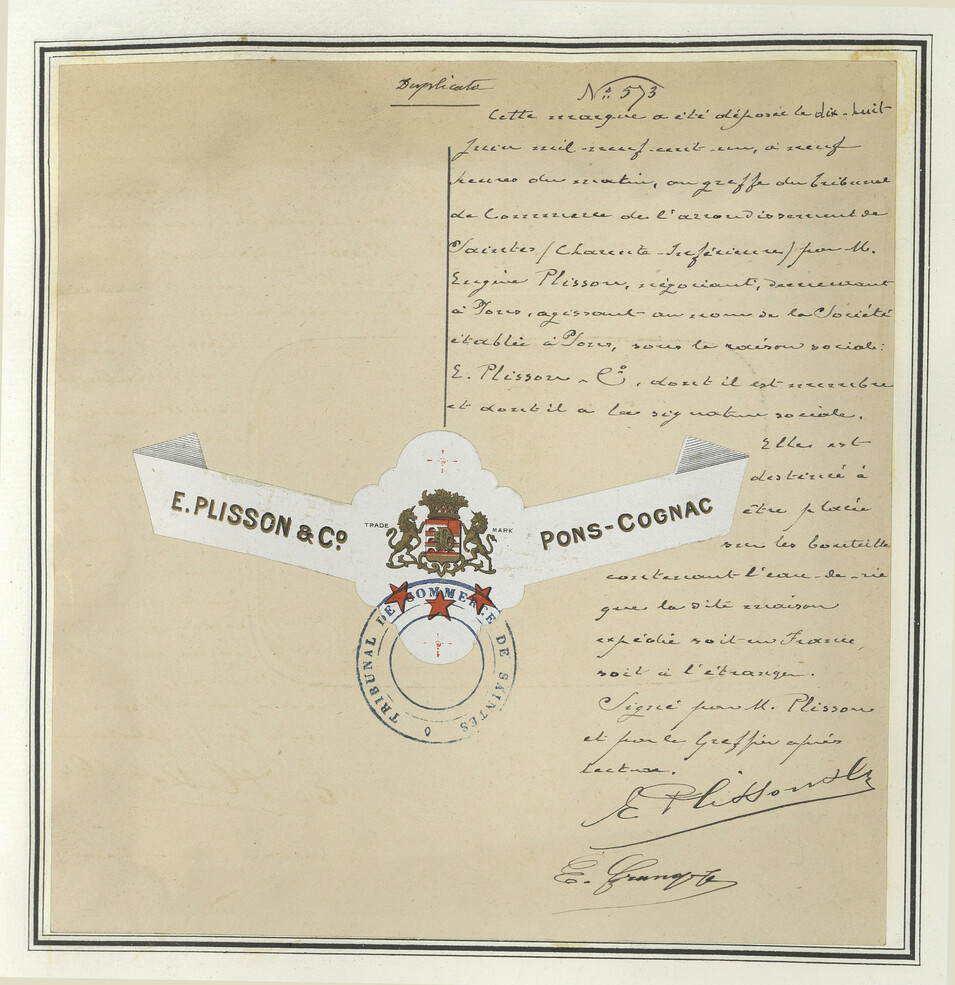 Duplicata
Nº 573
Cette marque a été déposée le dix-huit
Juin mil-neuf-cent-un, à neuf
heures du matin, au greffe du Tribunal
de Commerce de l'arrondissement de
Saintes (Charente-Inférieure) par M.
Eugène Plisson, négociant, demeurant
à Pons, agissant au nom de la Société
établie à Pons, sous la raison sociale:
E. Plisson & Cº, dont il est membre
et dont il a la signature sociale.
Elle est
destinée à
être placée
sur les bouteilles
contenant l'eau-de-vie
que la dite maison
expédie soit en France,
soit à l'étranger.
Signé par M. Plisson
et par le Greffier après
lecture.
E Plisson & Cº
E.
E. PLISSON & Cº
TRADE MARK
PONS-COGNAC
TRIBUNAL DE COMMERCE DE SAINTES